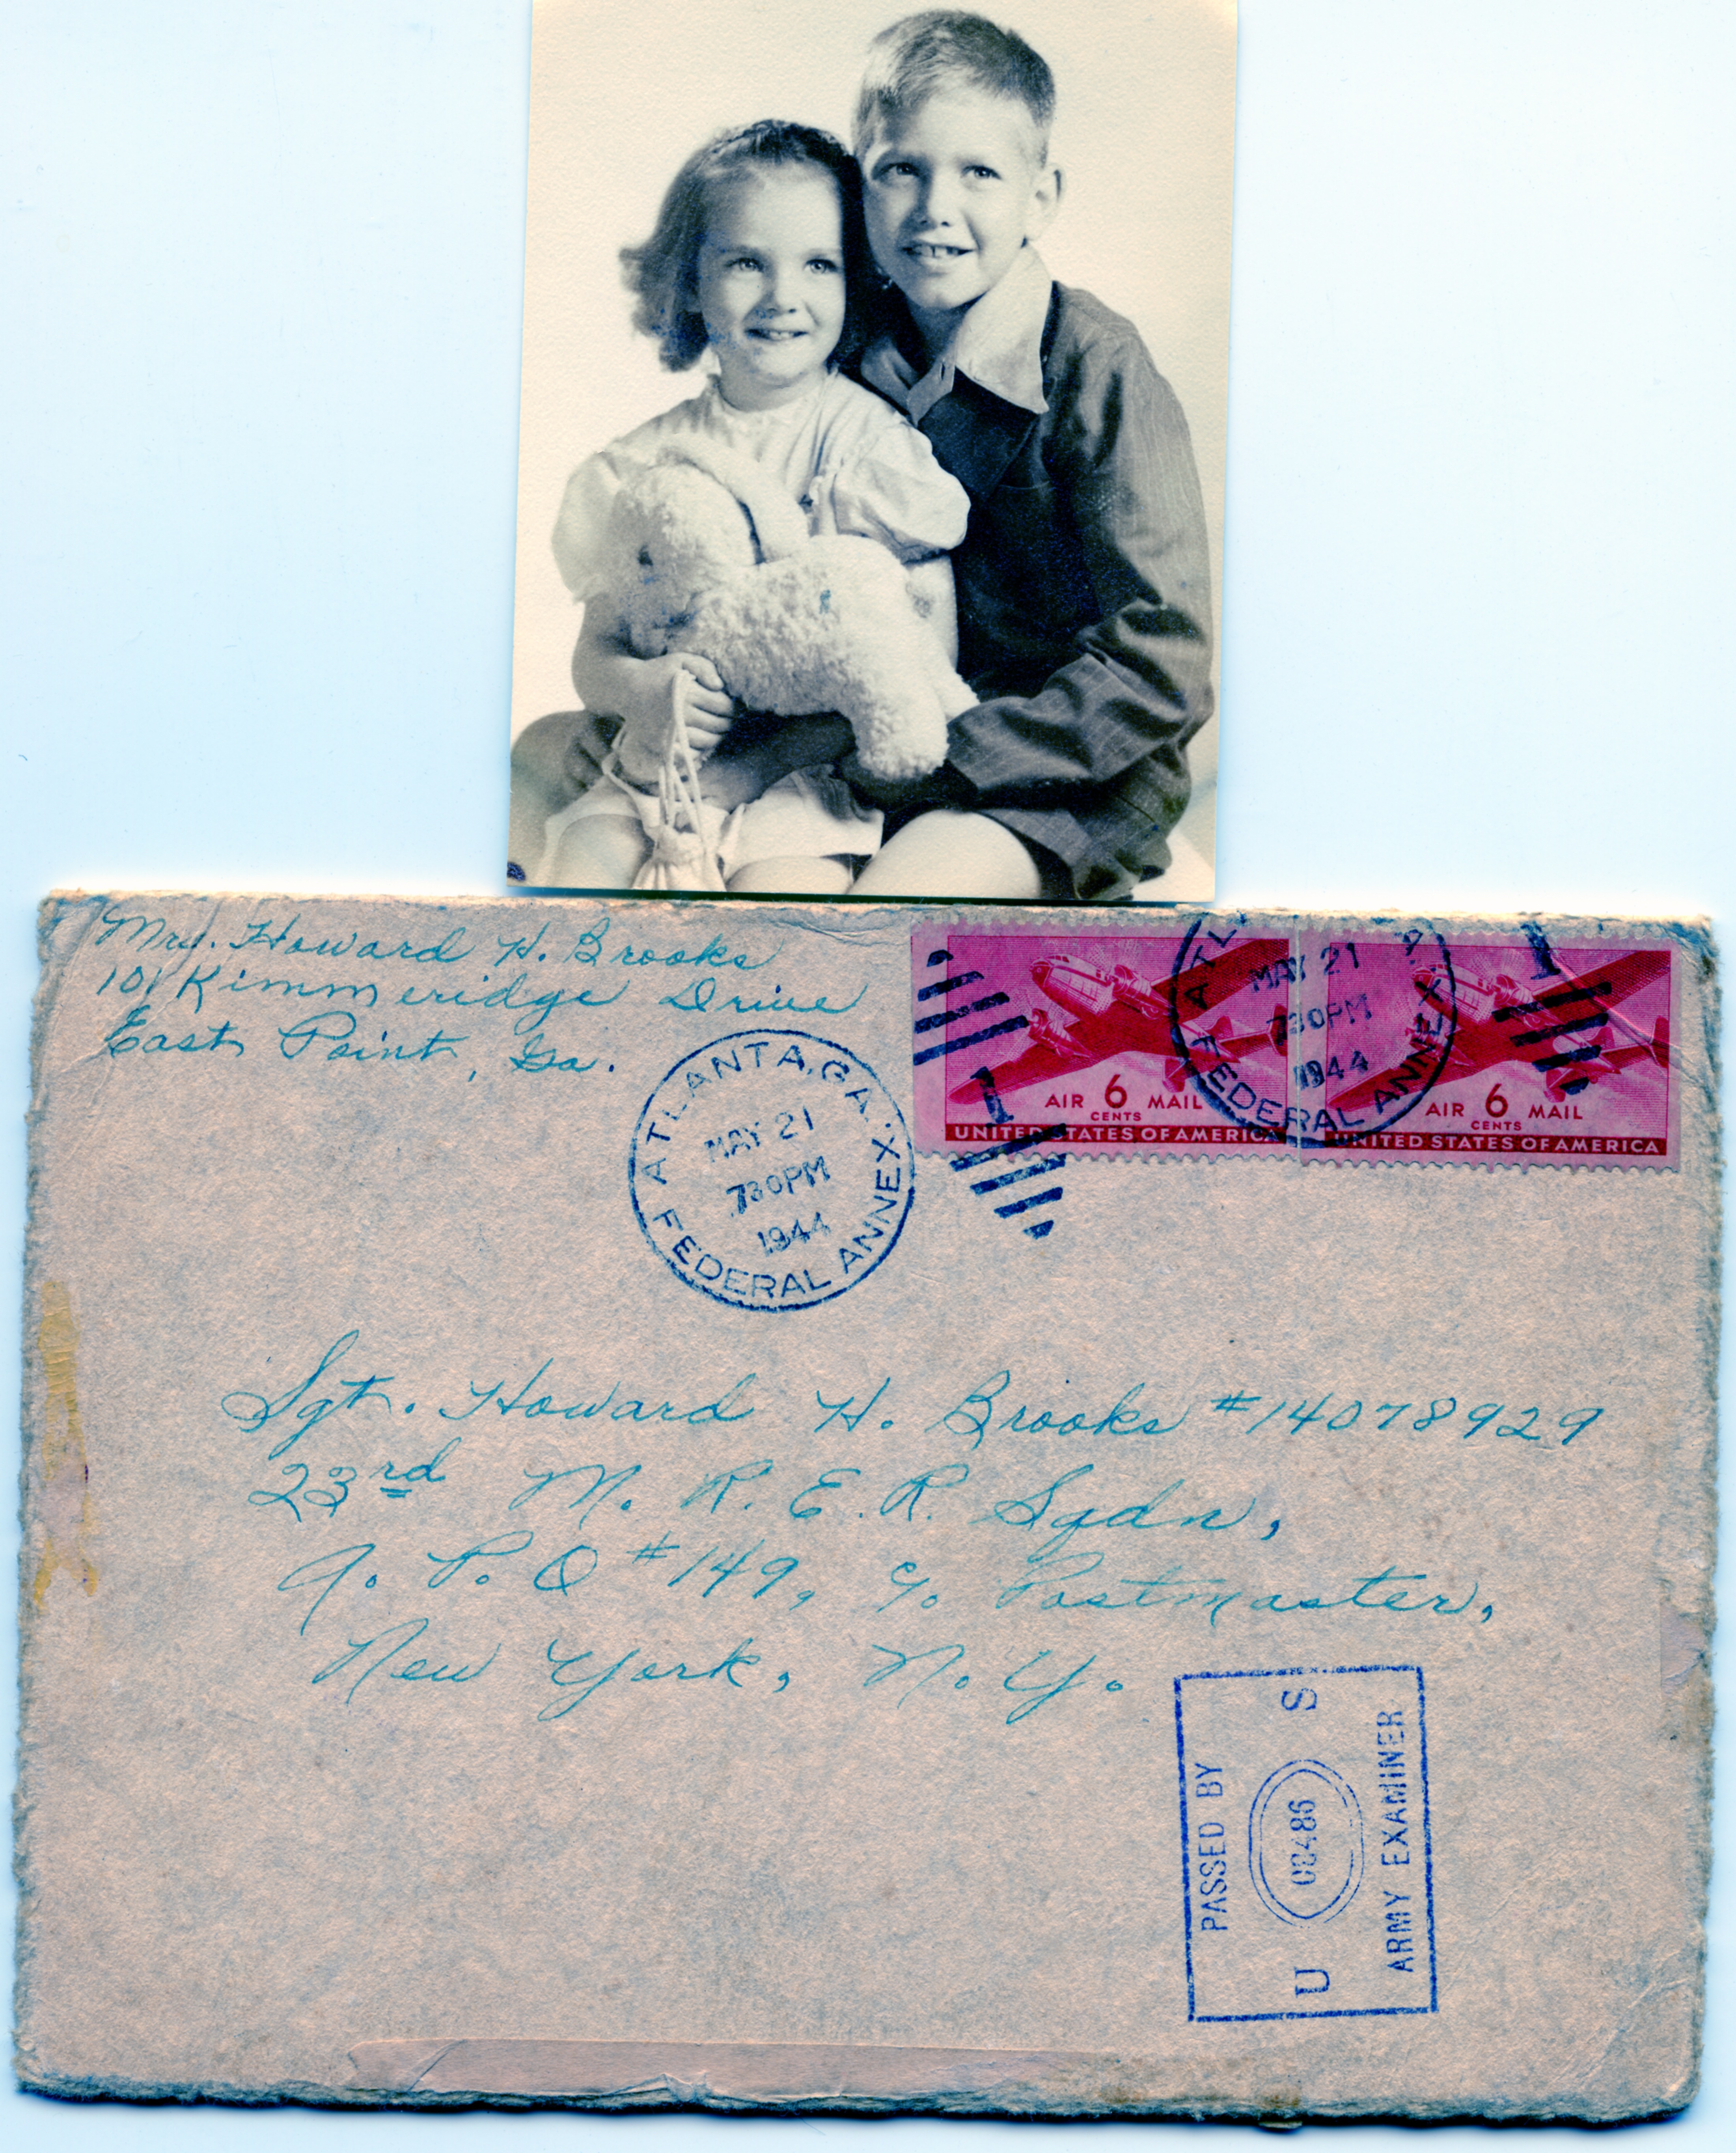 Mrs. Howard H. Brooks
101 Kimmeridge Drive
East Point, Ga.
ATLANTA, GA.
MAY 21
730PM
1944
FEDERAL ANNEX
ATL A
MAY 21
730PM
1944
FEDERAL ANNEX
1
1
AIR 6 MAIL
CENTS
UNITED STATES OF AMERICA
AIR 6 MAIL
CENTS
UNITED STATES OF AMERICA
Sgt. Howard H. Brooks #14078929
23rd M. R. E. R. Sqdn,
A. P. O #149, % Postmaster,
New York, N. Y.
PASSED BY
U S
ARMY EXAMINER